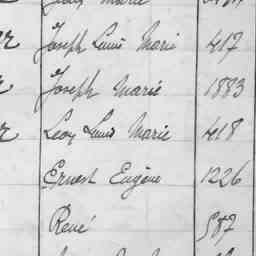 Marie
Joseph Louis Marie 417
Joseph Marie 1883
Léon Louis Marie 418
Ernest Eugène 1226
René 587